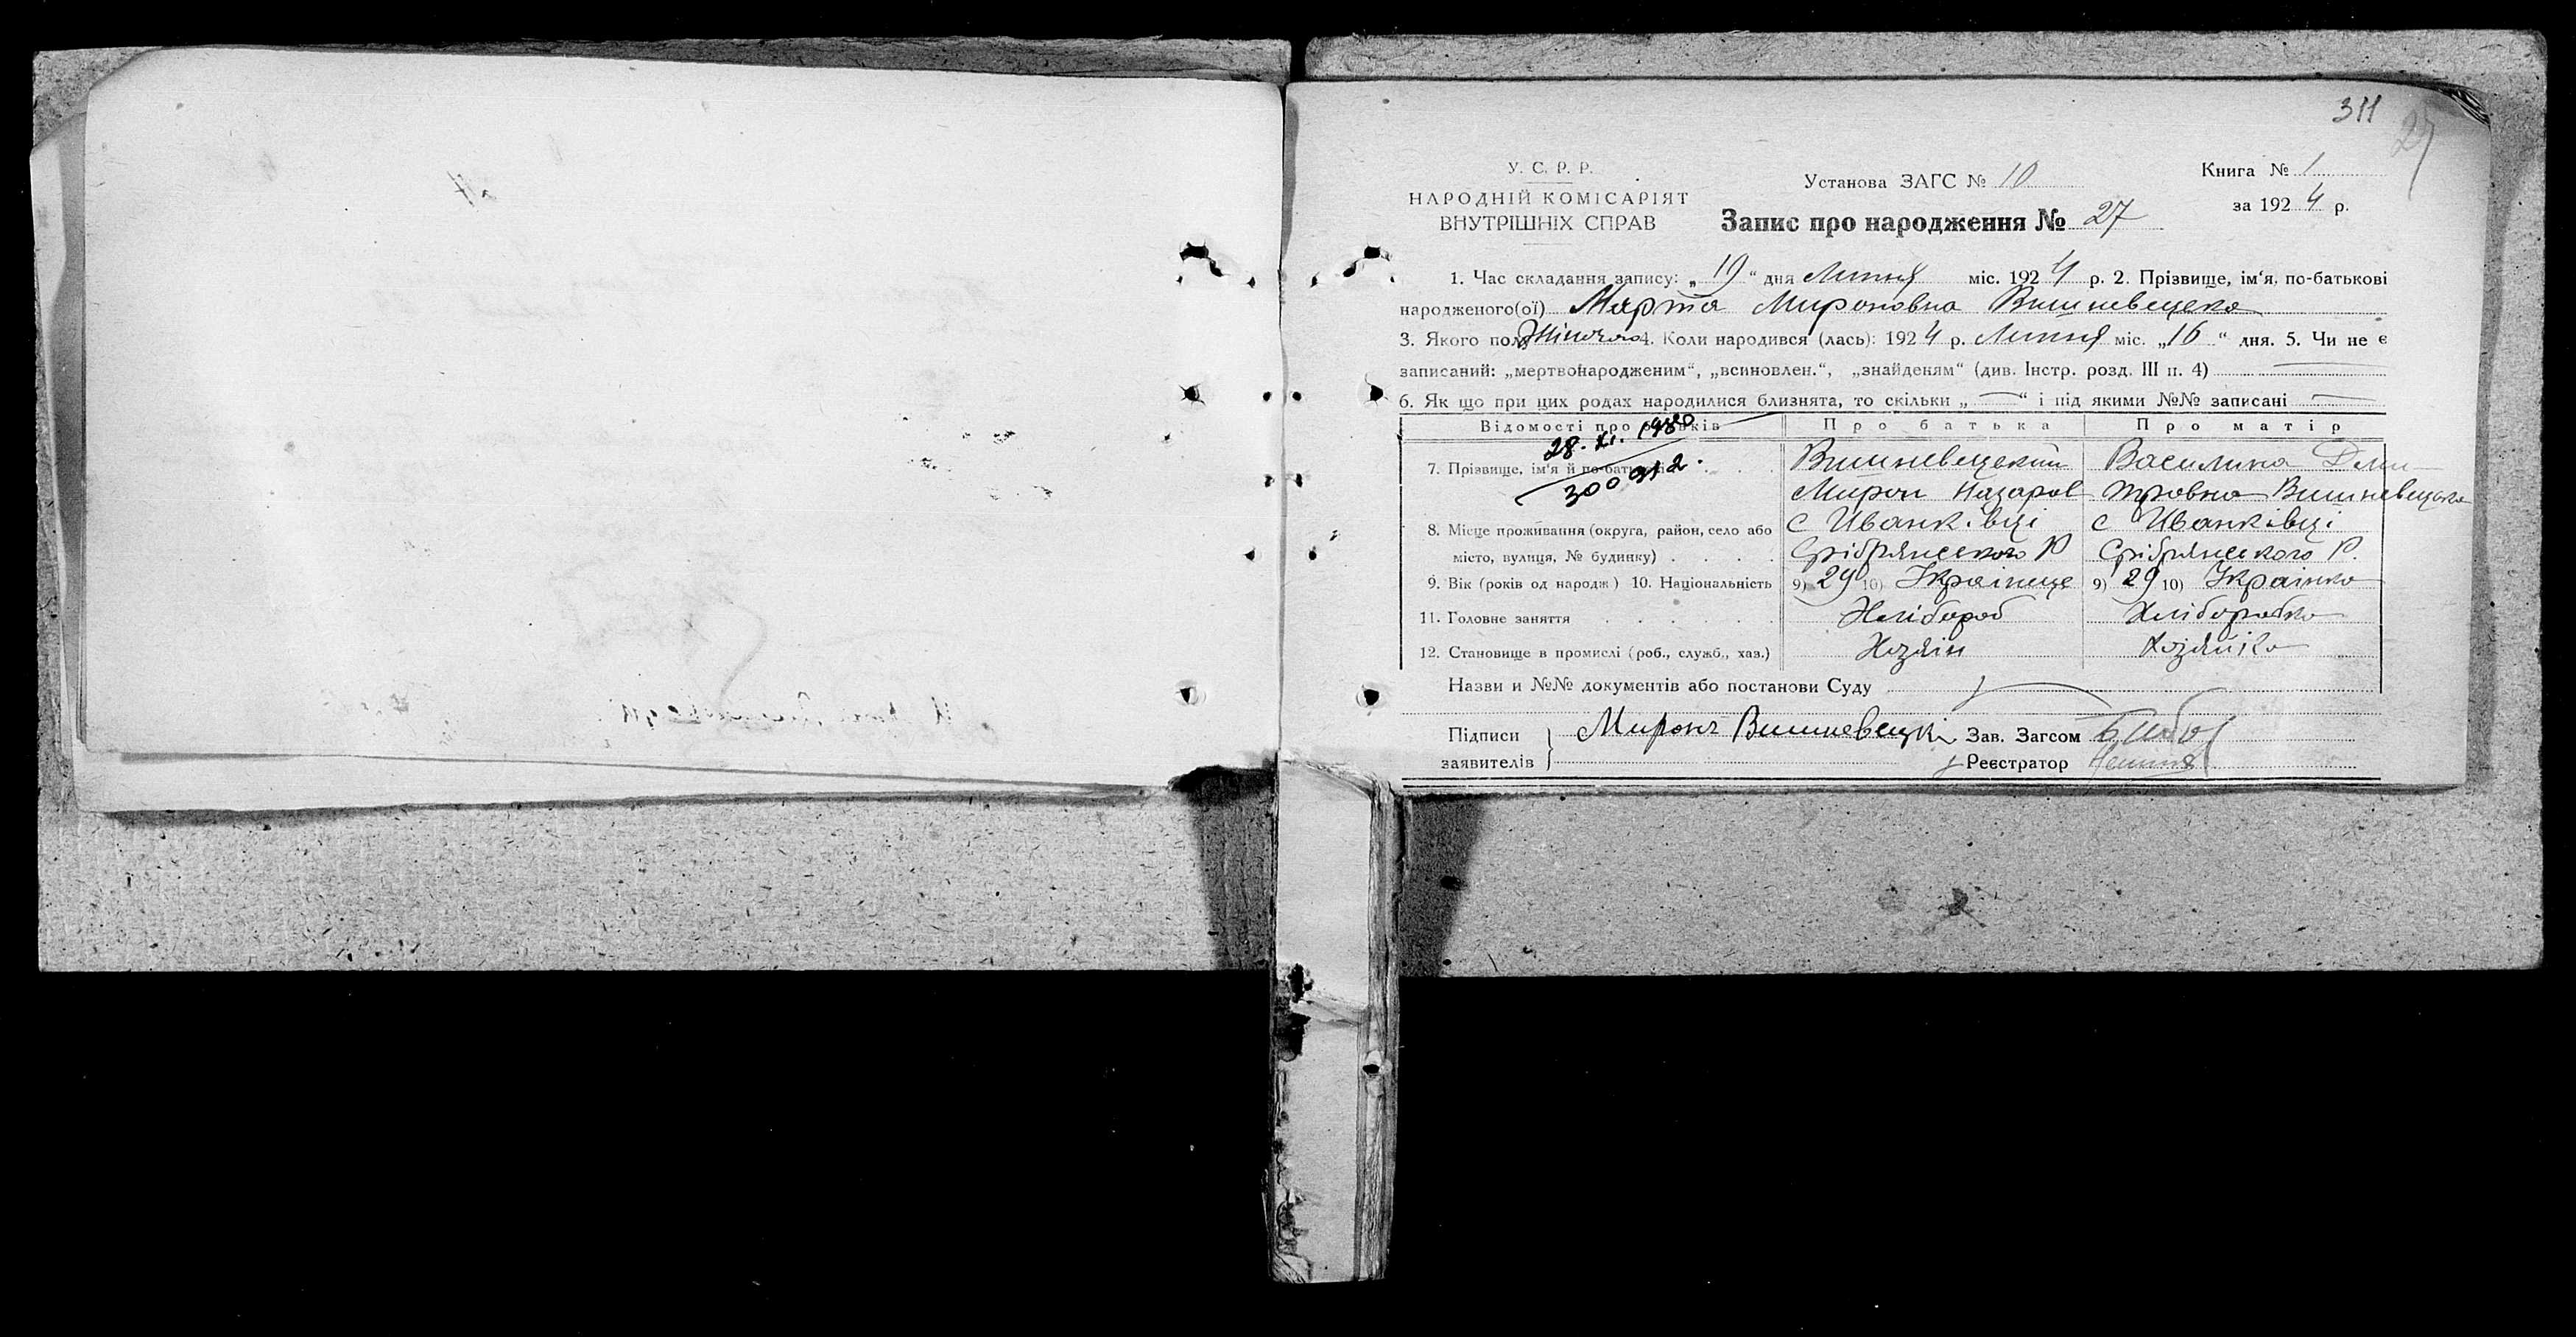 311
27
У. С. Р. Р.
НАРОДНІЙ КОМІСАРІЯТ
ВНУТРІШНІХ СПРАВ
Установа ЗАГС № 10
Запис про народження № 27
Книга № 1
за 1924 р.
1. Час складання запису: „19“ дня Липня міс. 1924 р. 2. Прізвище, ім‘я, по-батькові
народженого(ої) Марта Мироновна Вишневецька
3. Якого полу Жіночого 4. Коли народився (лась): 1924 р. Липня міс. „16“ дня. 5. Чи не є
записаний: „мертвонародженим“, „всиновлен.“, „знайденям“ (див. Інстр. розд. III п. 4) —
6. Як що при цих родах народилися близнята, то скільки „—“ і під якими №№ записані —
Відомості про батьків Про батька Про матір
28. XI. 1980
300912.
7. Прізвище, ім‘я й по-батькові Вишневецкий Василина Дми-
Мирон Назаров тровна Вишневецька
8. Місце проживання (округа, район, село або с Иванківці с Иванківці
місто, вулиця, № будинку) Срібрянского Р Срібрянского Р.
9. Вік (років од народж) 10. Національність 9) 29 10) Украінець 9) 29 10) Украінка
11. Головне заняття Хлібороб Хліборобка
12. Становище в промислі (роб., служб., хаз.) Хозяін Хозяйка
Назви и №№ документів або постанови Суду
Підписи Миронъ Вишневецкі Зав. Загсом
заявителів Реєстратор